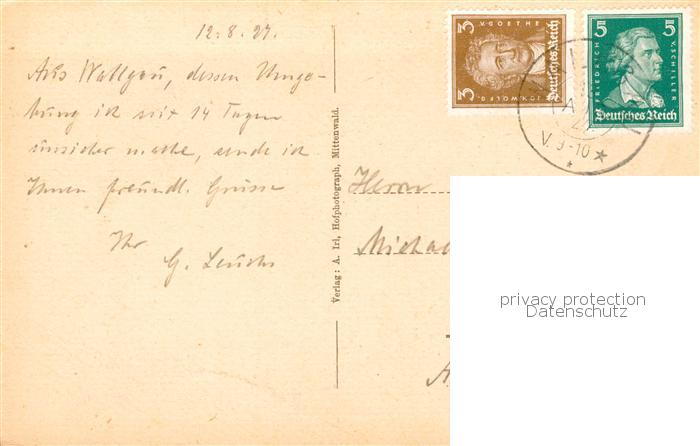 12.8.27.
Aus Wallgau, dessen Umge-
bung ich seit 14 Tagen
unsicher mache, sende ich
Ihnen freundl. Grüsse
Ihr
G.
Verlag: A. Irl, Hofphotograph, Mittenwald.
3 V. GOETHE 3
JOH. WOLFG.
Deutsches Reich
5 V. SCHILLER 5
FRIEDRICH
Deutsches Reich
V. 9-10
Herrn
Michae
privacy protection
Datenschutz